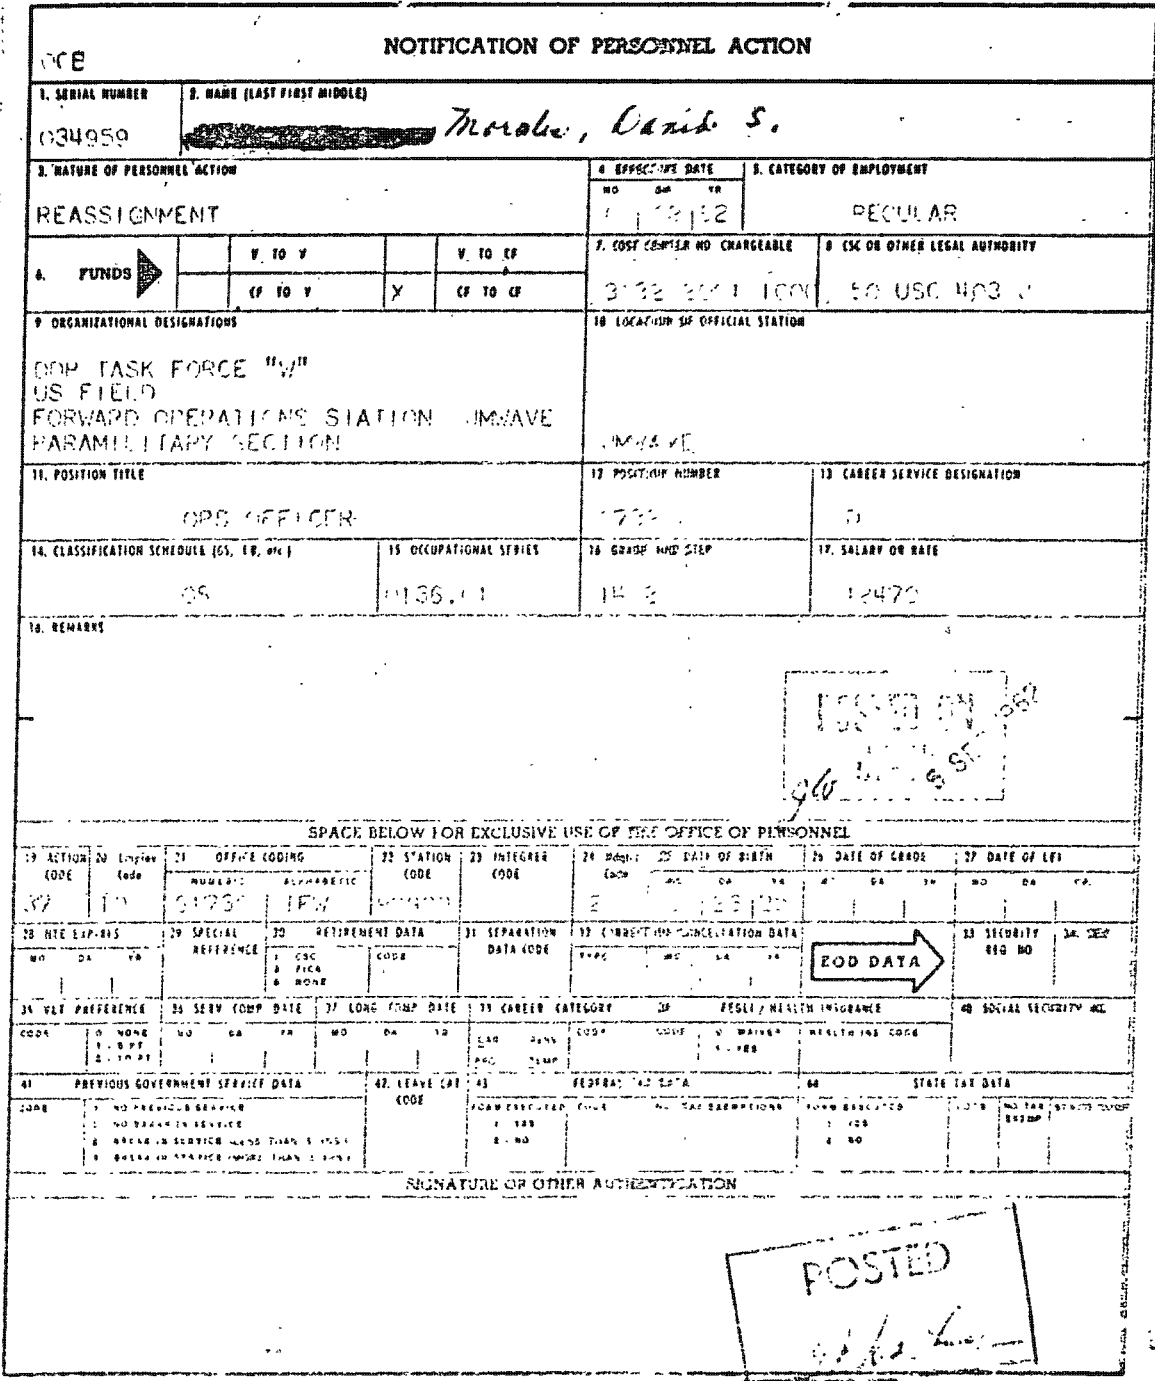 OCB
NOTIFICATION OF PERSONNEL ACTION
1. SERIAL NUMBER
2. NAME (LAST FIRST MIDDLE)
034959
Morales, David S.
3. NATURE OF PERSONNEL ACTION
4 EFFECTIVE DATE
5. CATEGORY OF EMPLOYMENT
MO DA YR
REASSIGNMENT
62
REGULAR
6. FUNDS
V TO V
V TO CF
CF TO V
X
CF TO CF
7. COST CENTER NO CHARGEABLE
8 CSC OR OTHER LEGAL AUTHORITY
50 USC 403 J
9 ORGANIZATIONAL DESIGNATIONS
10 LOCATION OF OFFICIAL STATION
DDP TASK FORCE "W"
US FIELD
FORWARD OPERATIONS STATION JMWAVE
PARAMILITARY SECTION
JMWAVE
11. POSITION TITLE
12 POSITION NUMBER
13 CAREER SERVICE DESIGNATION
OPS OFFICER
D
14. CLASSIFICATION SCHEDULE (GS, LB, etc)
15 OCCUPATIONAL SERIES
16 GRADE AND STEP
17. SALARY OR RATE
GS
0136.01
14 2
12470
18. REMARKS
POSTED ON
SPACE BELOW FOR EXCLUSIVE USE OF THE OFFICE OF PERSONNEL
19 ACTION CODE
20 Employ Code
21 OFFICE CODING
NUMERIC ALPHABETIC
22 STATION CODE
23 INTEGREE CODE
24 Hdqtrs Code
25 DATE OF BIRTH
MO DA YR
26 DATE OF GRADE
MO DA YR
27 DATE OF LEI
MO DA YR
37
10
TFW
2
28 NTE EXPIRES
MO DA YR
29 SPECIAL REFERENCE
30 RETIREMENT DATA
1 CSC
3 FICA
5 NONE
CODE
31 SEPARATION DATA CODE
32 CORRECTION CANCELLATION DATA
TYPE MO DA YR
EOD DATA
33 SECURITY REQ NO
34 SEX
35 VET PREFERENCE
CODE
0 NONE
1 5 PT
2 10 PT
36 SERV COMP DATE
MO DA YR
37 LONG COMP DATE
MO DA YR
38 CAREER CATEGORY
CAR RESV
PROV TEMP
CODE
39 FEGLI / HEALTH INSURANCE
CODE
0 WAIVER
1 YES
HEALTH INS CODE
40 SOCIAL SECURITY NO.
41 PREVIOUS GOVERNMENT SERVICE DATA
CODE
NO PREVIOUS SERVICE
1 NO BREAK IN SERVICE
2 BREAK IN SERVICE (LESS THAN 3 YRS)
3 BREAK IN SERVICE (MORE THAN 3 YRS)
42. LEAVE CAT CODE
43 FEDERAL TAX DATA
FORM EXECUTED CODE NO. TAX EXEMPTIONS
1 YES
2 NO
44 STATE TAX DATA
FORM EXECUTED CODE NO TAX EXEMP STATE CODE
1 YES
2 NO
SIGNATURE OR OTHER AUTHENTICATION
POSTED